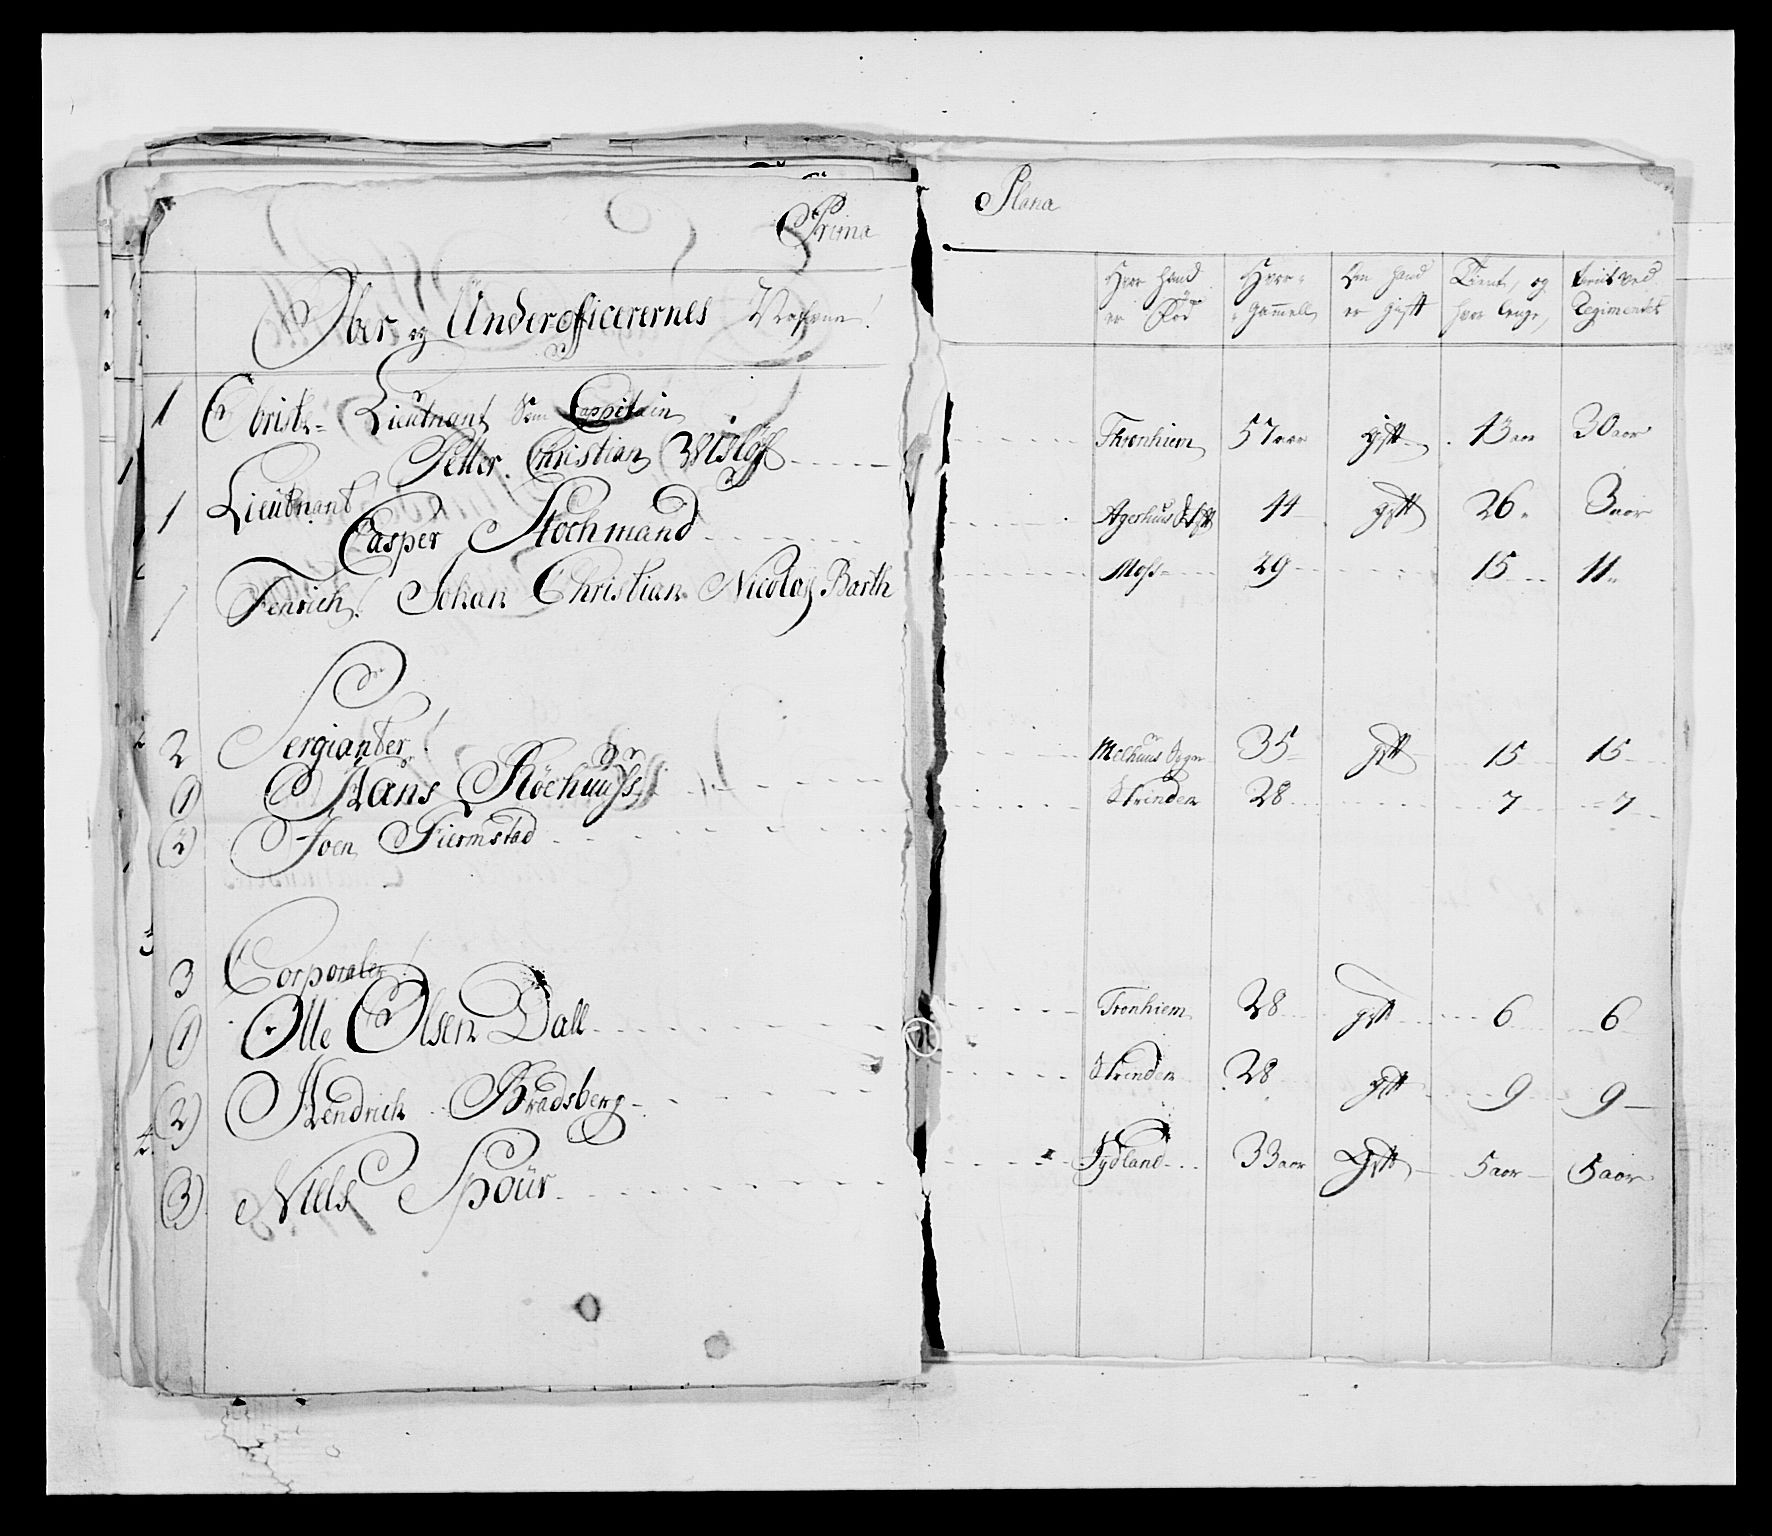 Prima Plana
Ober og Underofficerernes Nafne!
Hvor hand er Fød
Hvor gammell
Om hand er gift
Tient, og hvor lenge,
ved Regimentet
1 Obriste-Lieutnant Som Cappitain
Petter Christian Wisløff Thronhiem 57 aar gift 43 aar 30 aar
1 Lieutnant
Casper Stochmand Agerhuus Stift 44 gift 26 3 aar
1 Fenrich! Johan Christian Nicolay Barth Moss 29 15 11
2 Sergianter!
1 Hans Röehuuss Melhuus Sogn 35 gift 15 15
2 Joen Fiermstad Strinden 28 7 7
3 Corporaler!
1 Olle Olsen Dall Tronhiem 28 gift 6 6
2 Hendrich Bradsberg Strinden 28 gift 9 9
3 Nills Spour Jydland 33 aar gift 5 aar 5 aar